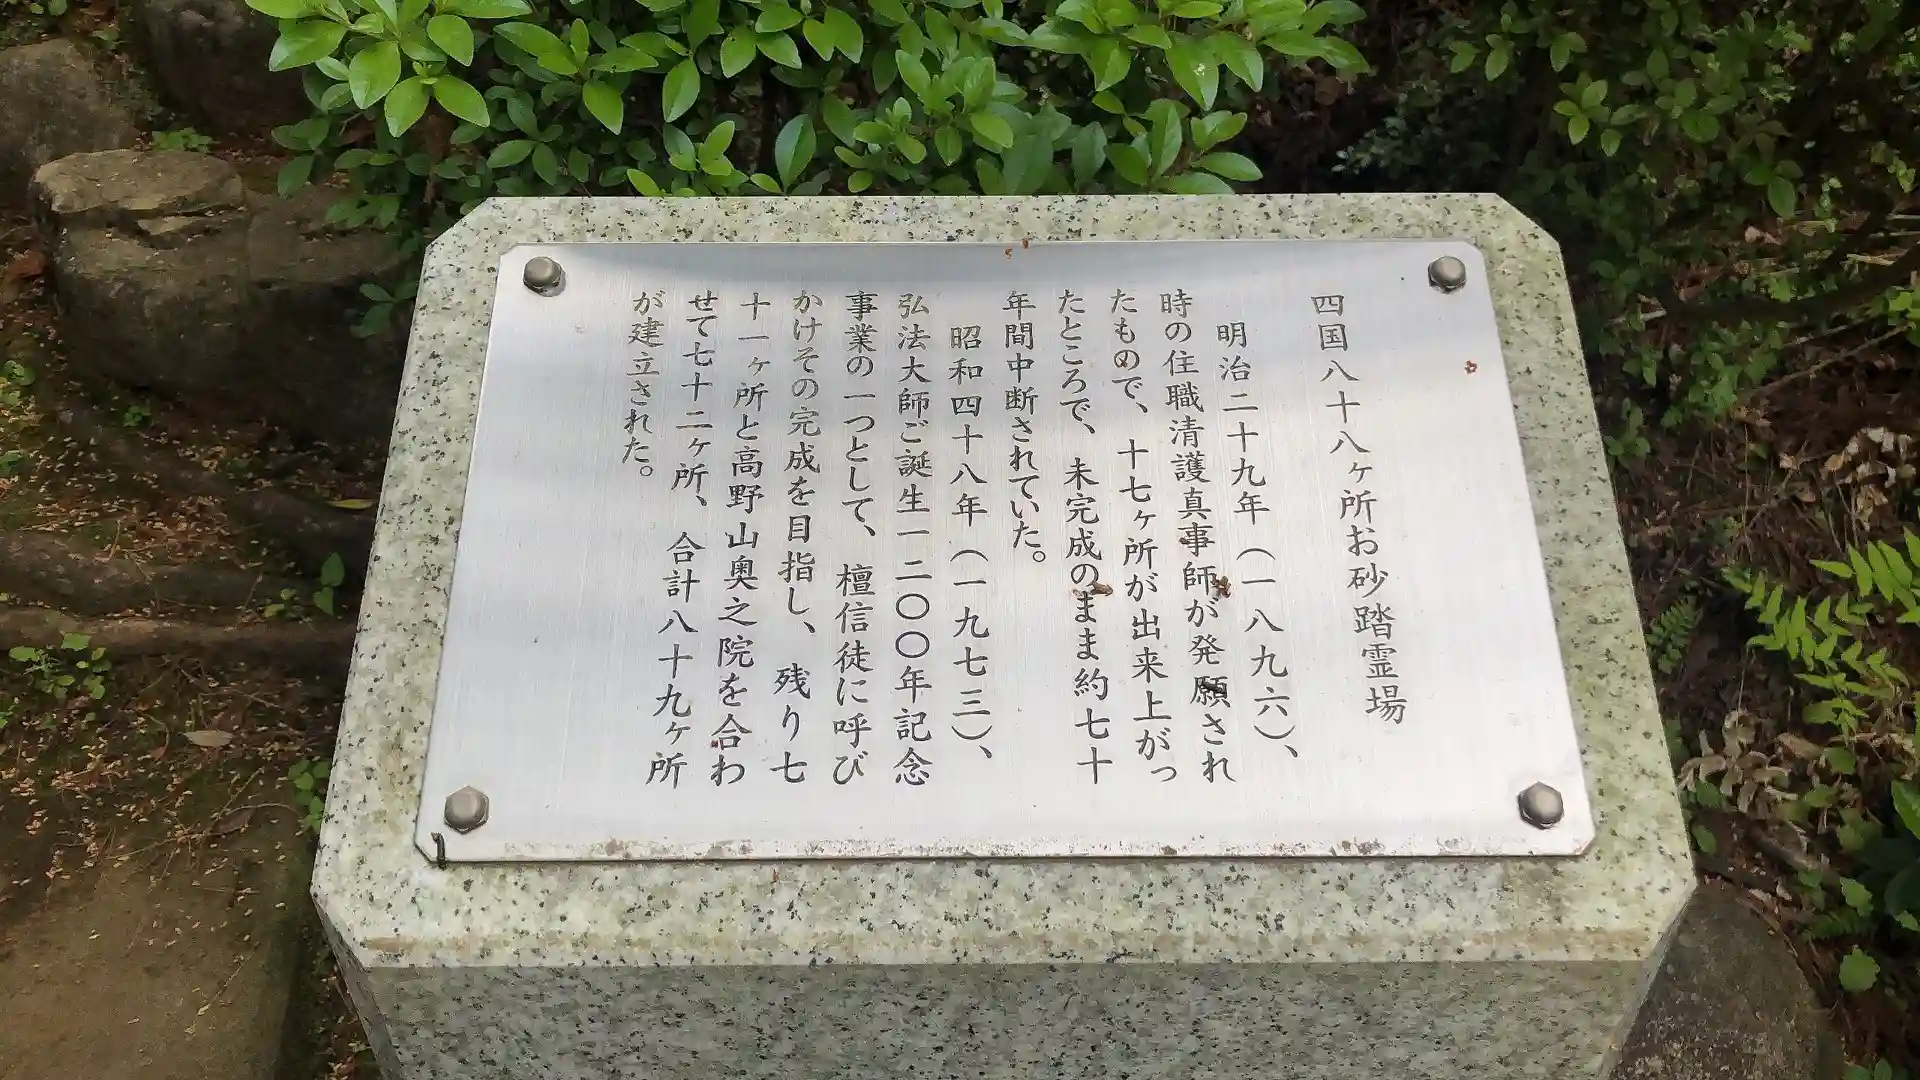 四国八十八ヶ所お砂踏霊場
明治二十九年（一八九六）、
時の住職清護真事師が発願され
たもので、十七ヶ所が出来上がっ
たところで、未完成のまま約七十
年間中断されていた。
昭和四十八年（一九七三）、
弘法大師ご誕生一二〇〇年記念
事業の一つとして、檀信徒に呼び
かけその完成を目指し、残り七
十一ヶ所と高野山奥之院を合わ
せて七十二ヶ所、合計八十九ヶ所
が建立された。